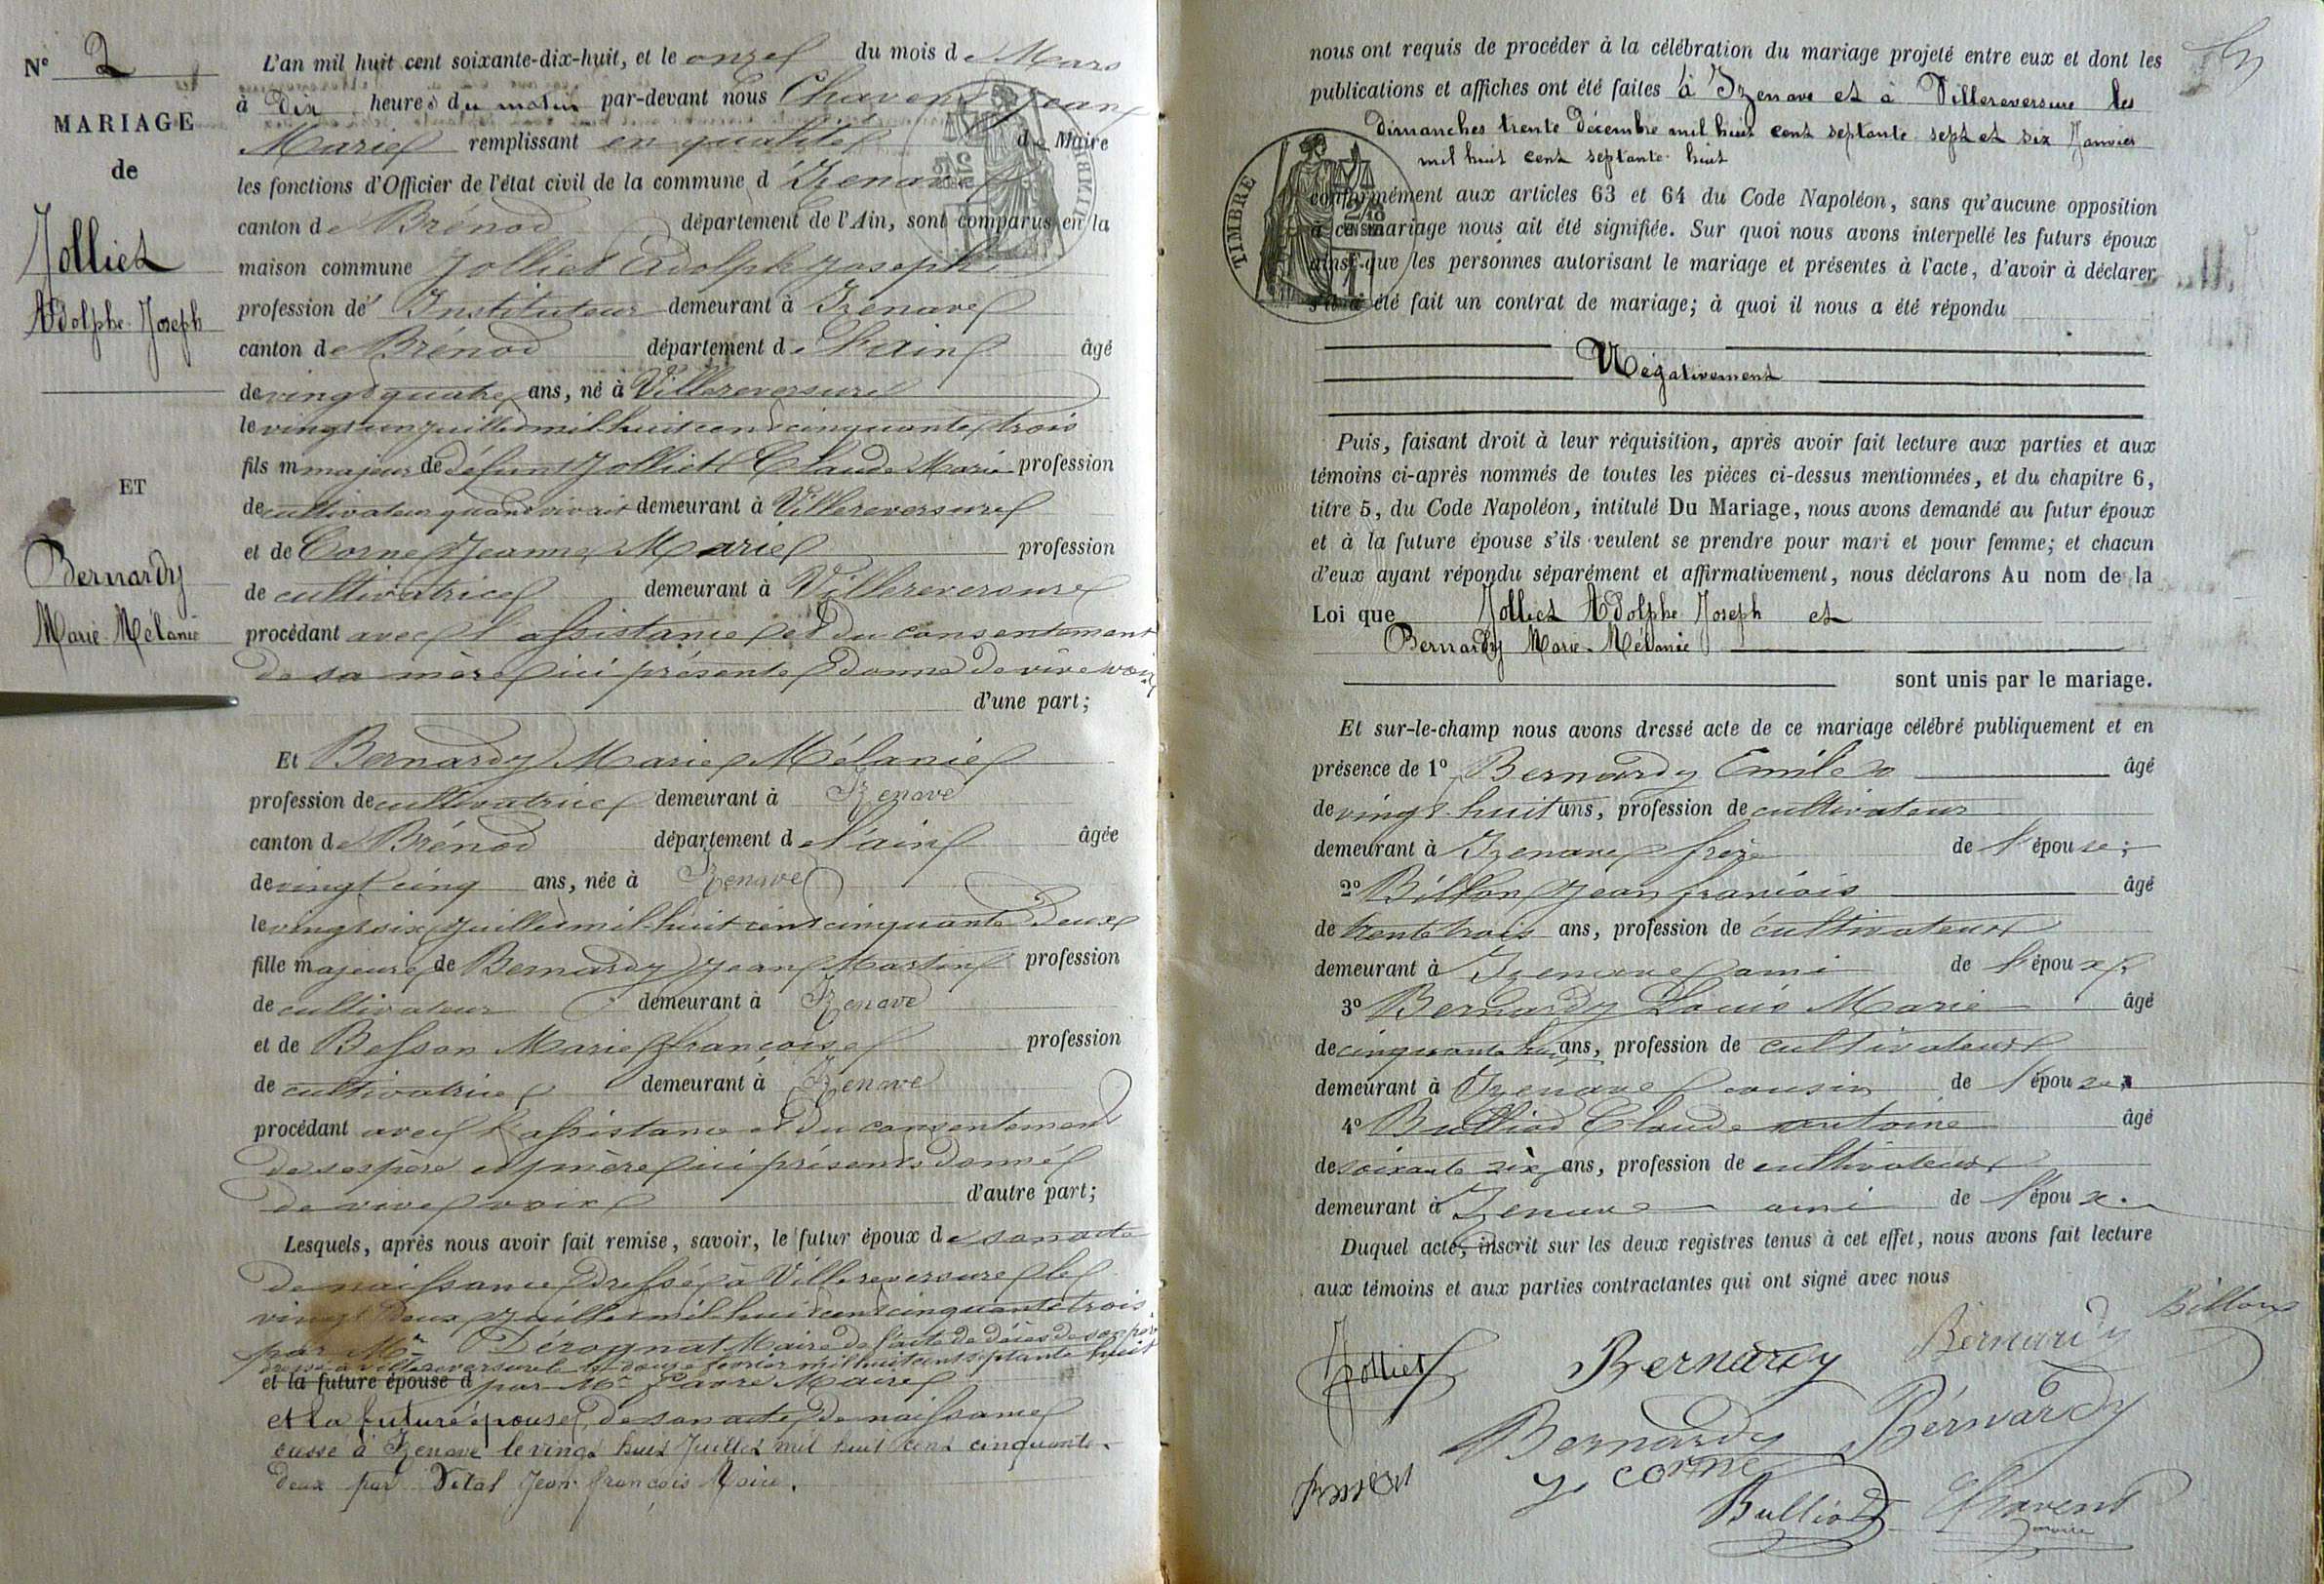 N° 2
MARIAGE
de
Jolliet
Adolphe Joseph
ET
Bernardy
Marie Mélanie
L'an mil huit cent soixante-dix-huit, et le onze du mois de Mars
à dix heures du matin par-devant nous Chavent Jean
Marie remplissant en qualité de Maire
les fonctions d'Officier de l'état civil de la commune d'Izenave
canton de Brénod département de l'Ain, sont comparus en la
maison commune Jolliet Adolphe Joseph
profession de Instituteur demeurant à Izenave
canton de Brénod département de l'ain âgé
de vingt quatre ans, né à Villereversure
le vingt un juillet mil huit cent cinquante trois
fils majeur de défunt Jolliet Claude Marie profession
de cultivateur quand vivait demeurant à Villereversure
et de Corne Jeanne Marie profession
de cultivatrice demeurant à Villereversure
procédant avec l'assistance et du consentement
de sa mère ici présente donné de vive voix
d'une part;
Et Bernardy Marie Mélanie
profession de cultivatrice demeurant à Izenave
canton de Brénod département de l'ain âgée
de vingt cinq ans, née à Izenave
le vingt six juillet mil huit cent cinquante deux
fille majeure de Bernardy Jean Martin profession
de cultivateur demeurant à Izenave
et de Besson Marie françoise profession
de cultivatrice demeurant à Izenave
procédant avec l'assistance et du consentement
de ses père et mère ici présents donné
de vive voix d'autre part;
Lesquels, après nous avoir fait remise, savoir, le futur époux de son acte
de naissance dressé à Villereversure le
vingt deux juillet mil huit cent cinquante trois
par Mr Dérognat Maire de l'acte de décès de son père
dressé à villereversure le douze février mil huit cent septante huit
et la future épouse d par Mr favre Maire
et la future épouse, de son acte de naissance
dressé à Izenave le vingt huit Juillet mil huit cent cinquante
deux par Vital Jean françois Maire.
nous ont requis de procéder à la célébration du mariage projeté entre eux et dont les
publications et affiches ont été faites à Izenave et à Villereversure les
dimanches trente décembre mil huit cent septante sept et six Janvier
mil huit cent septante huit
TIMBRE
conformément aux articles 63 et 64 du Code Napoléon, sans qu'aucune opposition
à ce mariage nous ait été signifiée. Sur quoi nous avons interpellé les futurs époux
ainsi que les personnes autorisant le mariage et présentes à l'acte, d'avoir à déclarer
s'il a été fait un contrat de mariage; à quoi il nous a été répondu
Négativement
Puis, faisant droit à leur réquisition, après avoir fait lecture aux parties et aux
témoins ci-après nommés de toutes les pièces ci-dessus mentionnées, et du chapitre 6,
titre 5, du Code Napoléon, intitulé Du Mariage, nous avons demandé au futur époux
et à la future épouse s'ils veulent se prendre pour mari et pour femme; et chacun
d'eux ayant répondu séparément et affirmativement, nous déclarons Au nom de la
Loi que Jolliet Adolphe Joseph et
Bernardy Marie-Mélanie
sont unis par le mariage.
Et sur-le-champ nous avons dressé acte de ce mariage célébré publiquement et en
présence de 1° Bernardy Emile âgé
de vingt-huit ans, profession de cultivateur
demeurant à Izenave frère de l'épouse;
2° Billon Jean françois âgé
de trente trois ans, profession de cultivateur
demeurant à Izenave ami de l'époux
3° Bernardy Louis Marie âgé
de cinquante ans, profession de cultivateur
demeurant à Izenave cousin de l'épouse
4° Bulliod Claude antoine âgé
de soixante six ans, profession de cultivateur
demeurant à Izenave ami de l'époux.
Duquel acte, inscrit sur les deux registres tenus à cet effet, nous avons fait lecture
aux témoins et aux parties contractantes qui ont signé avec nous
Jolliet Bernardy Bernardy Billon
Bernardy Bernardy
J. corne
Bulliod Chavent
maire